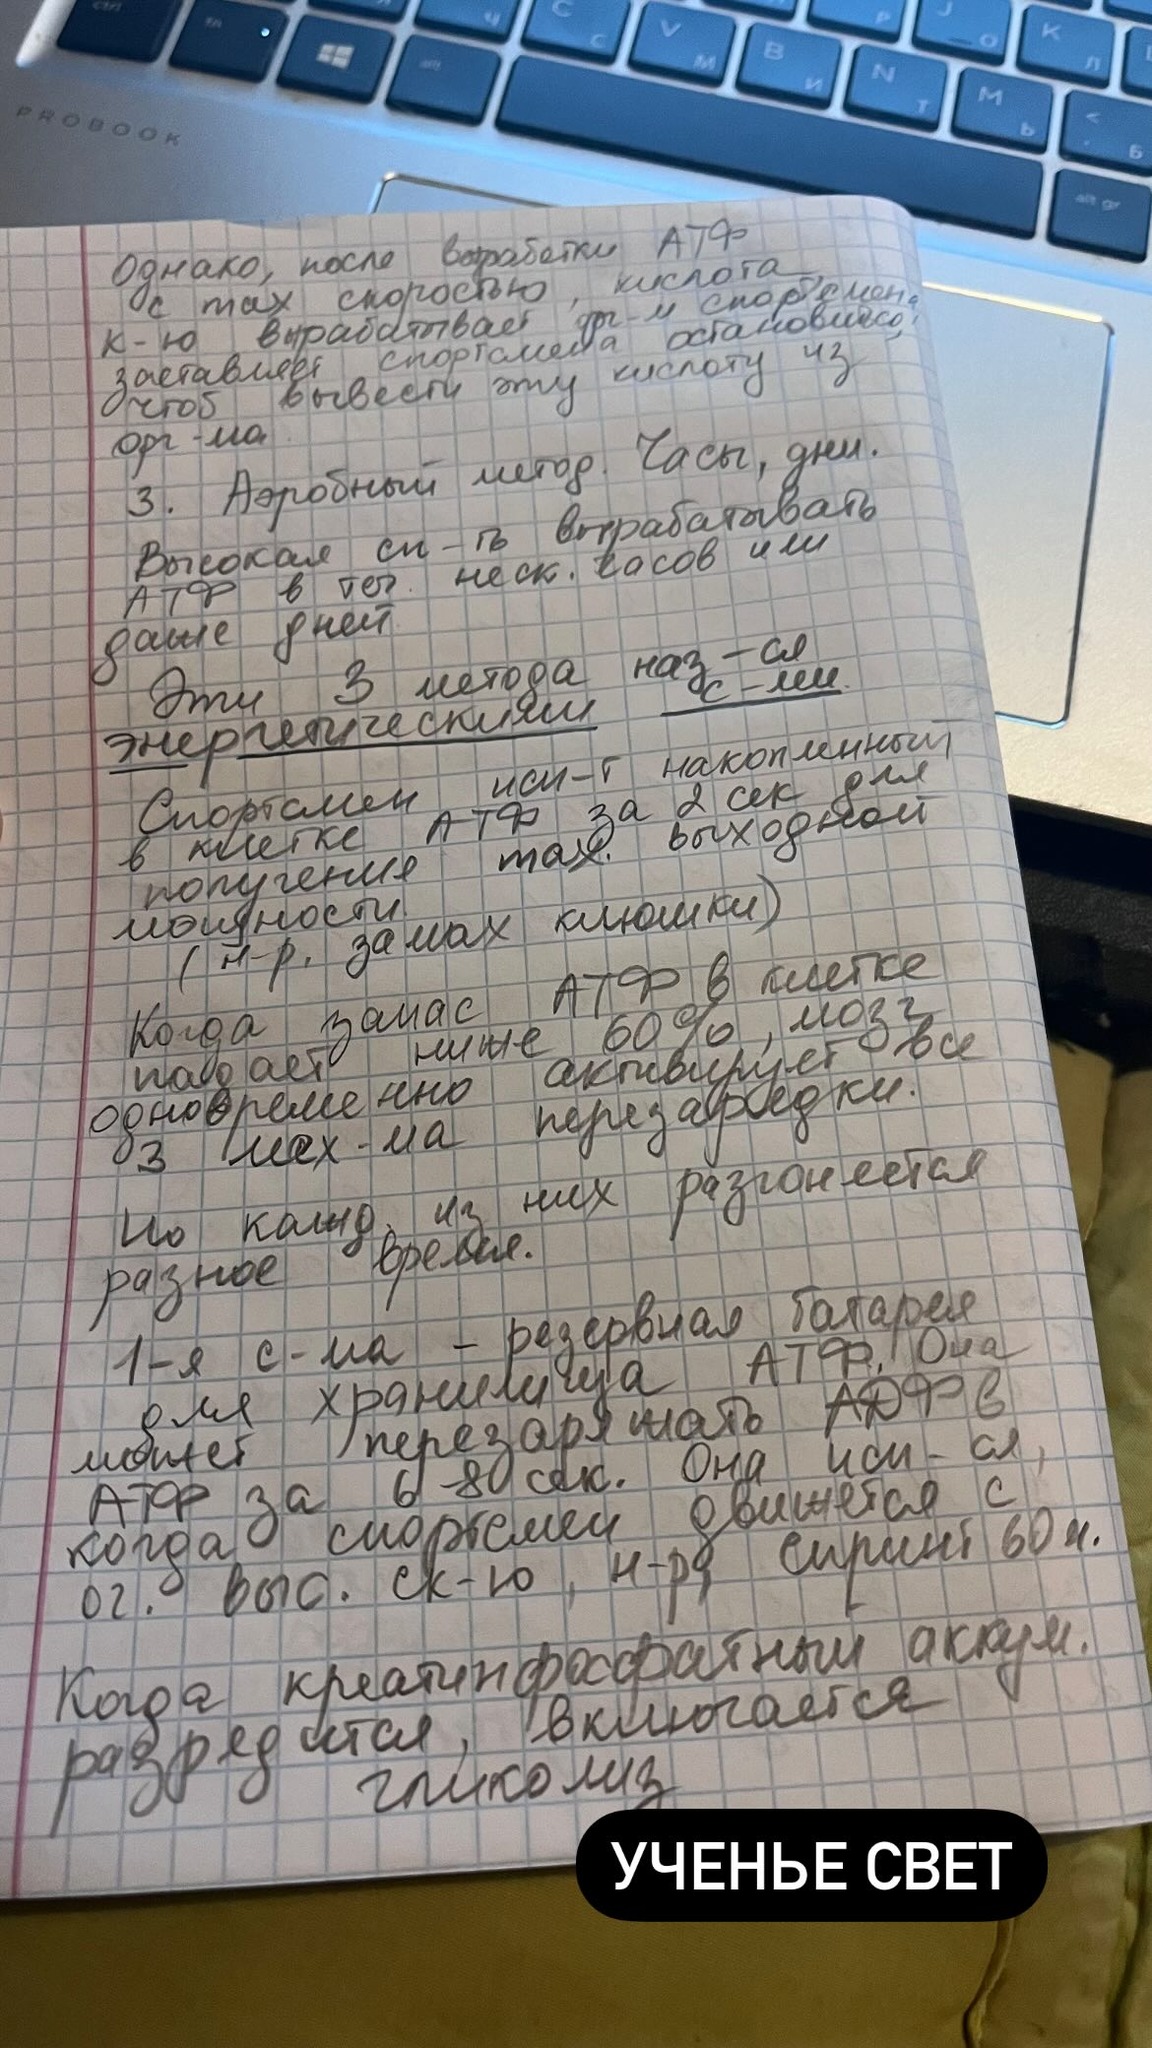 ctrl
fn
alt
C С
V М
B И
N Т
M Ь
< , Б
J О
K Л
alt gr
PROBOOK
Однако, после выработки АТФ
с max скоростью, кислота,
к-ю вырабатывает орг-м спортсмена,
заставляет спортсмена остановиться,
чтоб вывести эту кислоту из
орг-ма
3. Аэробный метод. Часы, дни.
Высокая сп-ть вырабатывать
АТФ в теч. неск. часов или
даже дней
Эти 3 метода наз-ся
энергетическими с-ми.
Спортсмен исп-т накопленный
в клетке АТФ за 2 сек для
получения max. выходной
мощности
(н-р. замах клюшки)
Когда запас АТФ в клетке
падает ниже 60%, мозг
одновременно активирует все
3 мех-ма перезарядки.
Но кажд. из них разгоняется
разное время.
1-я с-ма - резервная батарея
для хранилища АТФ. Она
может перезаряжать АДФ в
АТФ за 6-80 сек. Она исп-ся,
когда спортсмен движется с
оч. выс. ск-ю, н-р, спринт 60 м.
Когда креатинфосфатный аккум.
разредится, включается
гликолиз
УЧЕНЬЕ СВЕТ